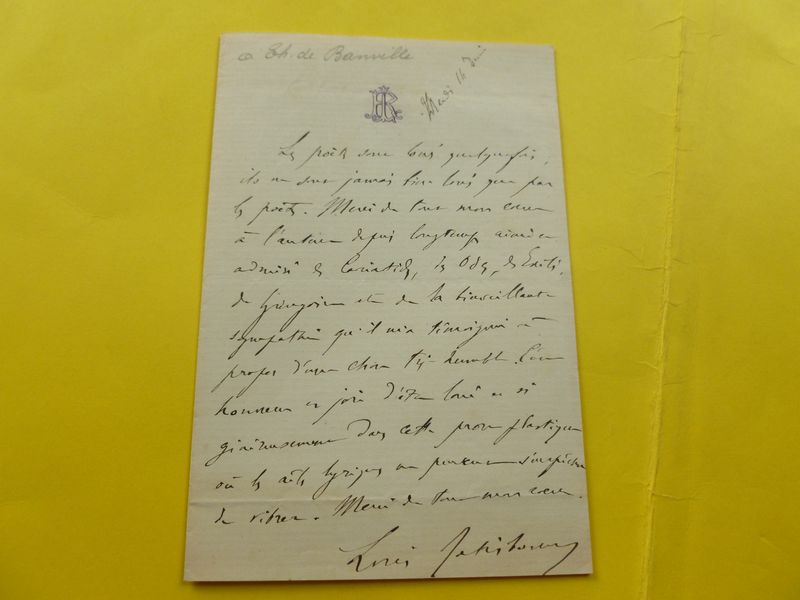 a Th. de Banville
Mardi 14 Juin
LR
Les poëtes sont loués quelquefois,
ils ne sont jamais bien loués que par
les poëtes. Merci de tout mon coeur
à l'auteur depuis longtemps aimé et
admiré des Cariatides, des Odes, des Exilés,
de Gringoire et de la bienveillante
sympathie qu'il m'a témoignée à
propos d'une chose très humble. C'est
honneur et joie d'être loué et si
généreusement dans cette prose plastique
où les ailes lyriques ne peuvent s'empêcher
de vibrer. Merci de tout mon coeur.
Louis Ratisbonne